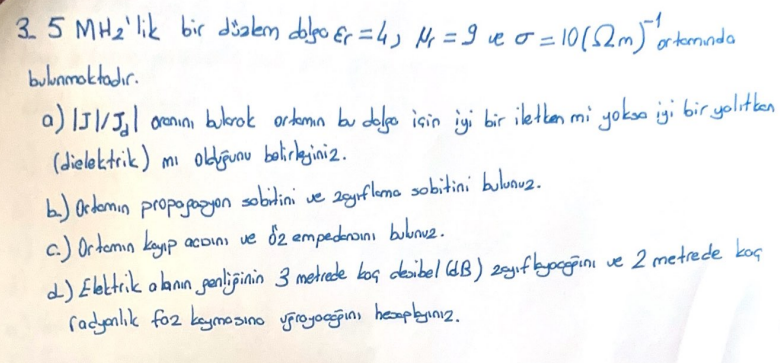 3. 5 MHz'lik bir düzlem dalga εr = 4, μr = 9 ve σ = 10(Ωm)⁻¹ ortamında
bulunmaktadır.
a) |J|/Jd| oranını bularak ortamın bu dalga için iyi bir iletken mi yoksa iyi bir yalıtkan
(dielektrik) mı olduğunu belirleyiniz.
b.) Ortamın propagasyon sabitini ve zayıflama sabitini bulunuz.
c.) Ortamın kayıp açısını ve öz empedansını bulunuz.
d.) Elektrik alanın genliğinin 3 metrede kaç desibel (dB) zayıflayacağını ve 2 metrede kaç
radyanlık faz kaymasına uğrayacağını hesaplayınız.